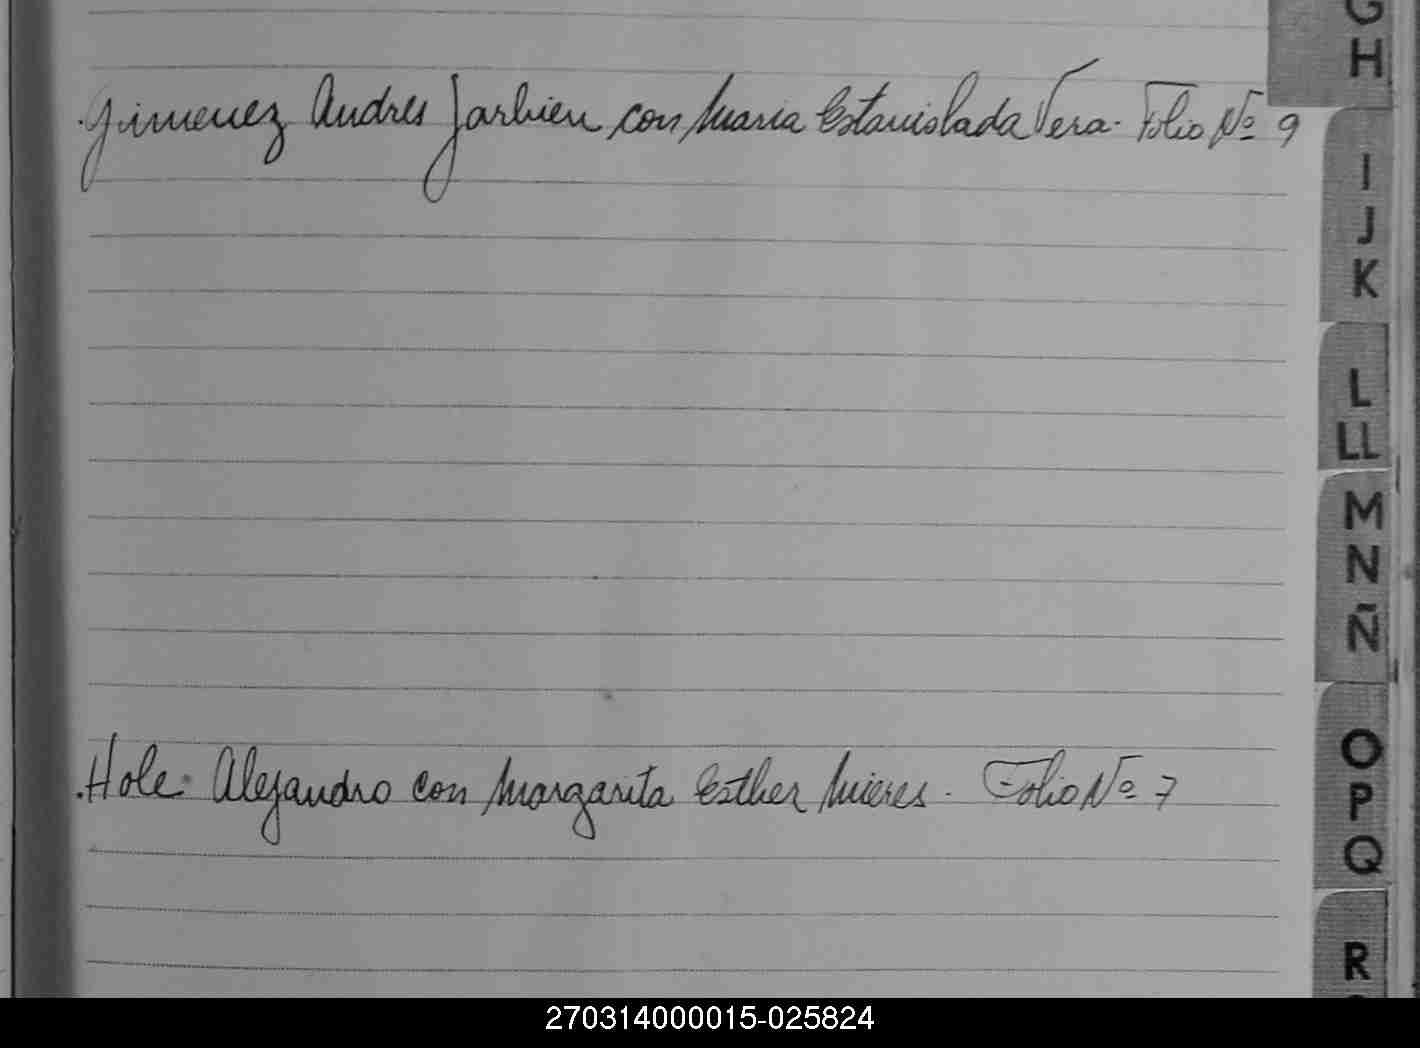 G
H
Gimenez Andres Jarbien con Maria Estanislada Vera. Folio Nº 9
I
J
K
L
LL
M
N
Ñ
Hole Alejandro con Margarita Esther Mieres. Folio Nº 7
O
P
Q
R
270314000015-025824